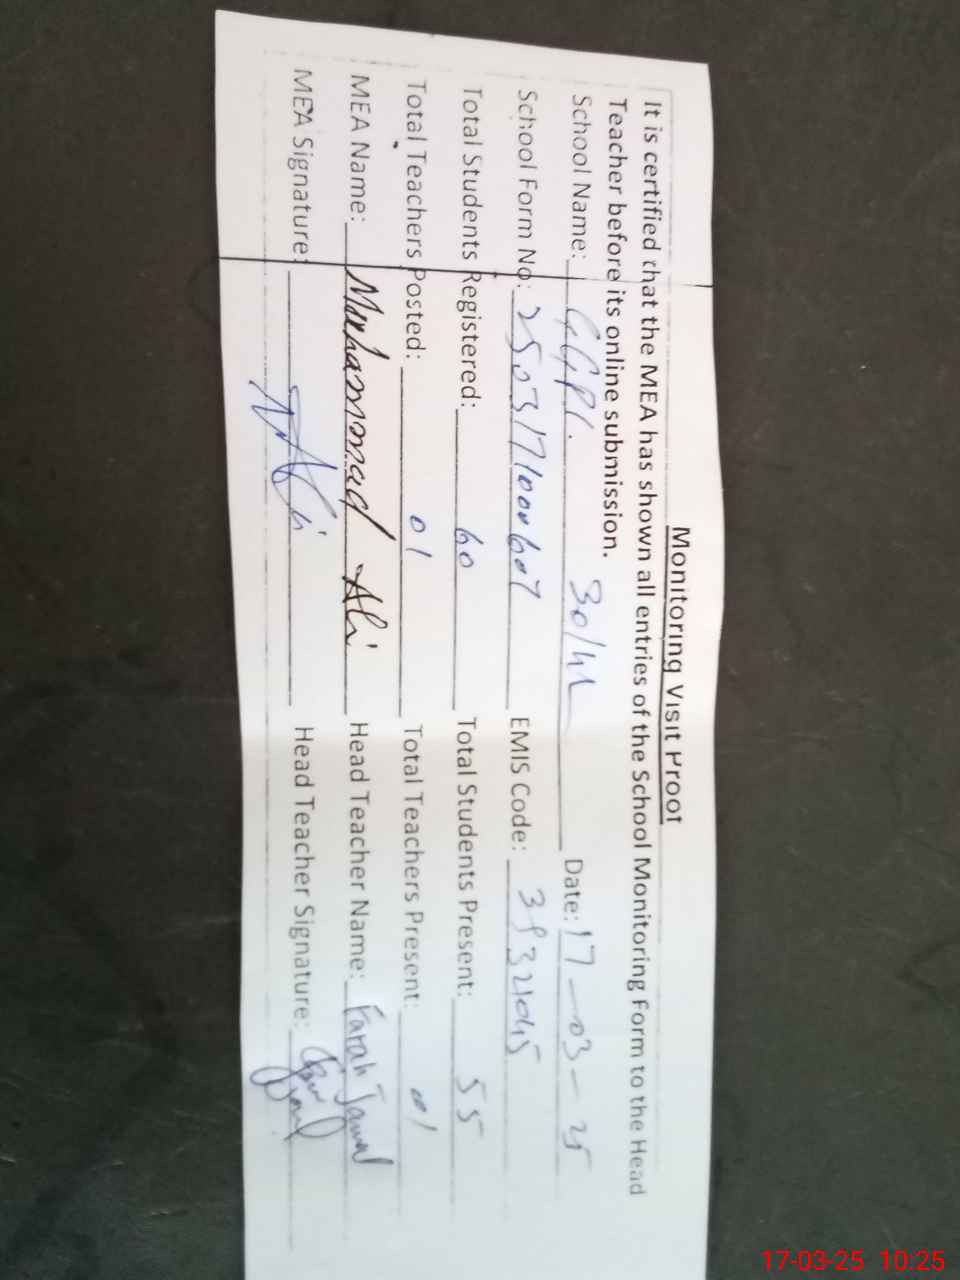 Monitoring Visit Proof
It is certified that the MEA has shown all entries of the School Monitoring Form to the Head
Teacher before its online submission.
School Name: GGPS. 30/4L Date: 17-03-25
School Form No: EMIS Code:
Total Students Registered: 60 Total Students Present: 55
Total Teachers Posted: 01 Total Teachers Present: 01
MEA Name: Muhammad Ali Head Teacher Name: Farah
MEA Signature: Head Teacher Signature:
17-03-25 10:25